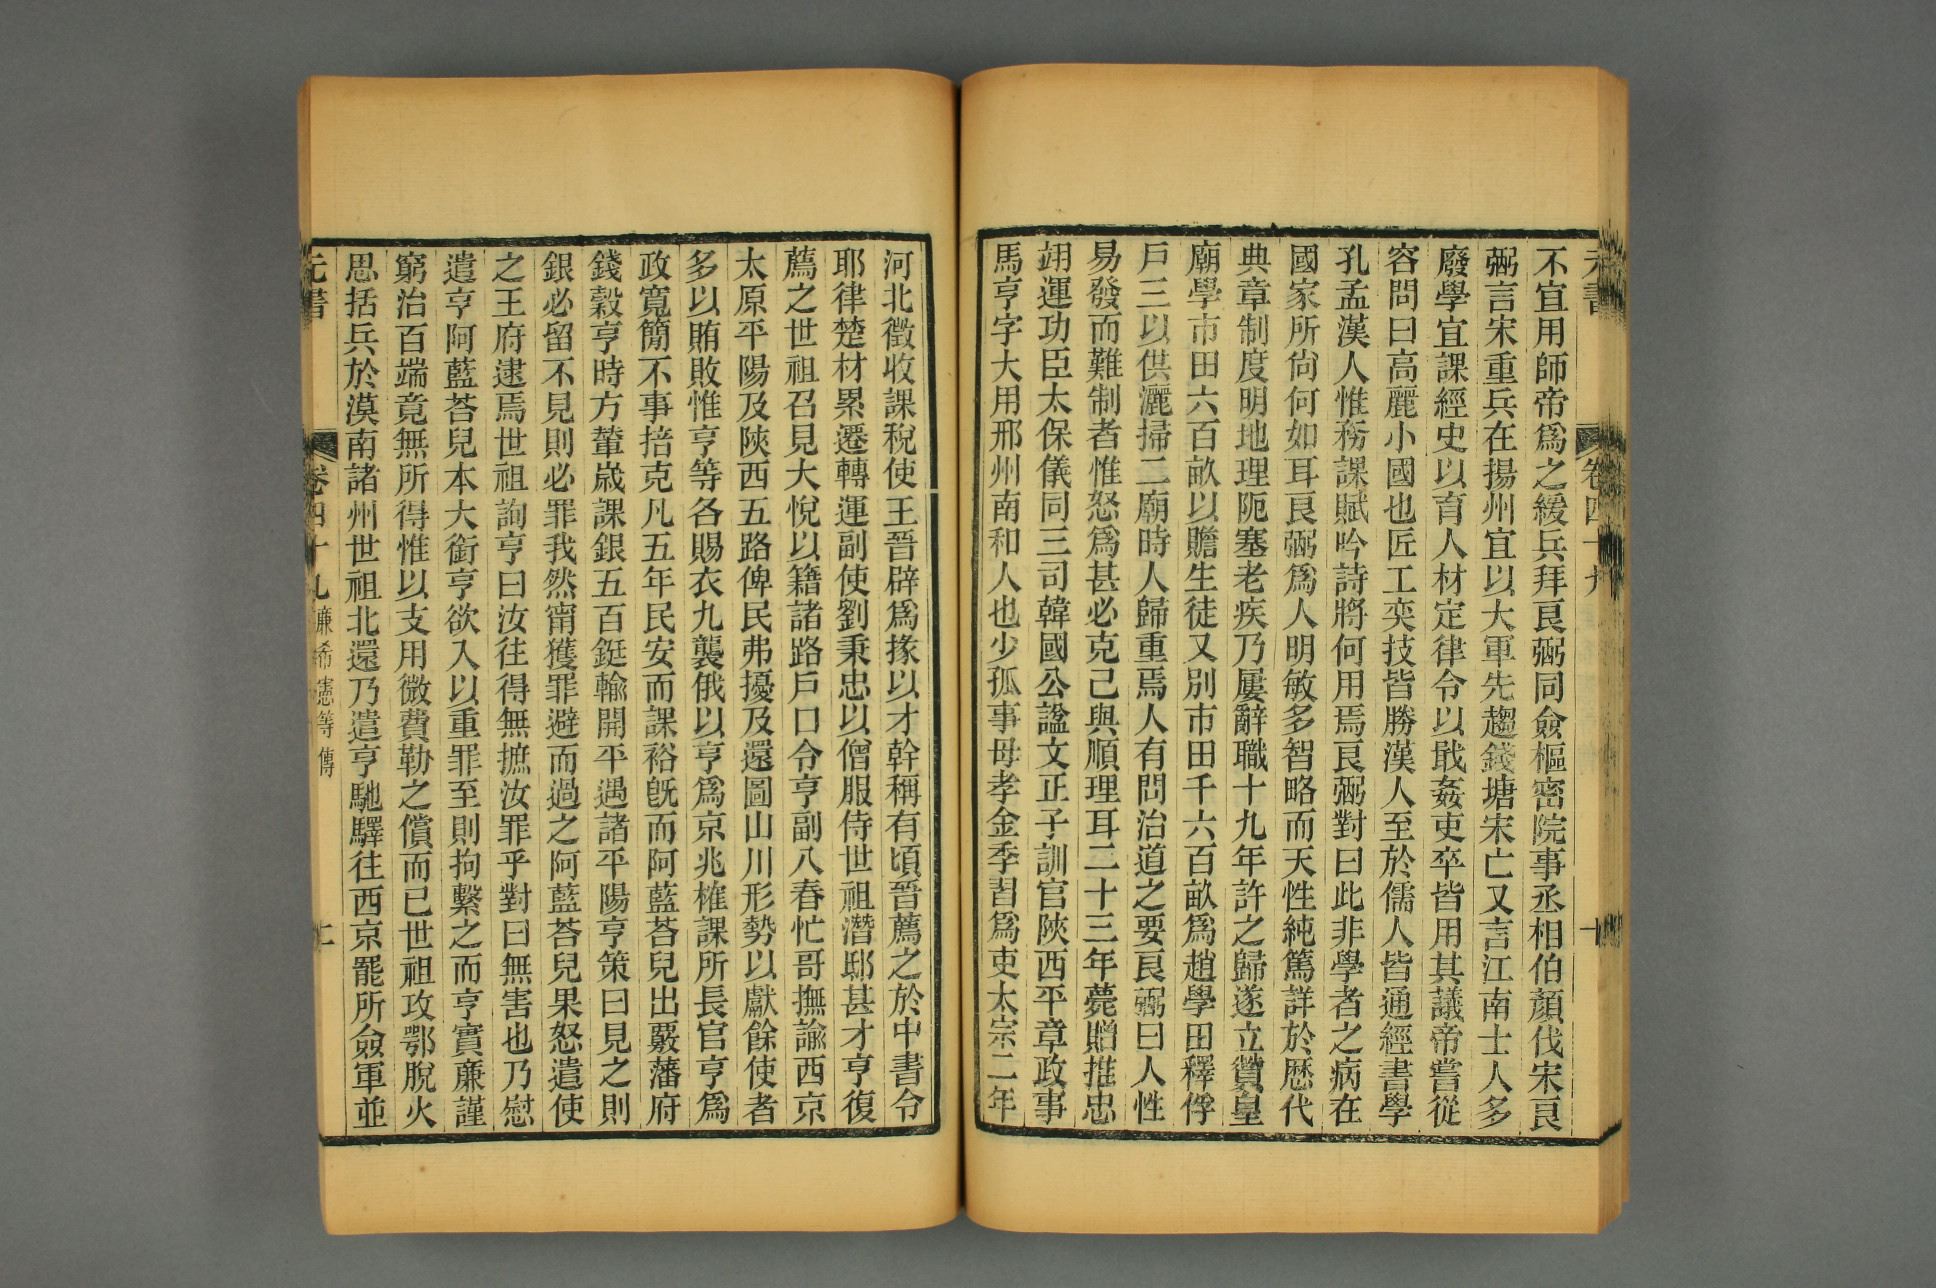 元書
卷四十九
十
不宜用師帝爲之緩兵拜良弼同僉樞密院事丞相伯顏伐宋良
弼言宋重兵在揚州宜以大軍先趨錢塘宋亡又言江南士人多
廢學宜課經史以育人材定律令以戢姦吏卒皆用其議帝嘗從
容問曰高麗小國也匠工奕技皆勝漢人至於儒人皆通經書學
孔孟漢人惟務課賦吟詩將何用焉良弼對曰此非學者之病在
國家所尙何如耳良弼爲人明敏多智略而天性純篤詳於歷代
典章制度明地理阨塞老疾乃屢辭職十九年許之歸遂立贊皇
廟學市田六百畝以贍生徒又別市田千六百畝爲趙學田釋俘
戶三以供灑掃二廟時人歸重焉人有問治道之要良弼曰人性
易發而難制者惟怒爲甚必克己與順理耳二十三年薨贈推忠
翊運功臣太保儀同三司韓國公諡文正子訓官陝西平章政事
馬亨字大用邢州南和人也少孤事母孝金季習爲吏太宗二年
河北徵收課稅使王晉辟爲掾以才幹稱有頃晉薦之於中書令
耶律楚材累遷轉運副使劉秉忠以僧服侍世祖潛邸甚才亨復
薦之世祖召見大悅以籍諸路戶口令亨副八春忙哥撫諭西京
太原平陽及陝西五路俾民弗擾及還圖山川形勢以獻餘使者
多以賄敗惟亨等各賜衣九襲俄以亨爲京兆榷課所長官亨爲
政寬簡不事掊克凡五年民安而課裕旣而阿藍荅兒出覈藩府
錢穀亨時方輦歲課銀五百鋌輸開平遇諸平陽亨策曰見之則
銀必留不見則必罪我然甯獲罪避而過之阿藍荅兒果怒遣使
之王府逮焉世祖詢亨曰汝往得無摭汝罪乎對曰無害也乃慰
遣亨阿藍荅兒本大銜亨欲入以重罪至則拘繫之而亨實廉謹
窮治百端竟無所得惟以支用微費勒之償而已世祖攻鄂脫火
思括兵於漠南諸州世祖北還乃遣亨馳驛往西京罷所僉軍並
元書
卷四十九
廉希憲等傳